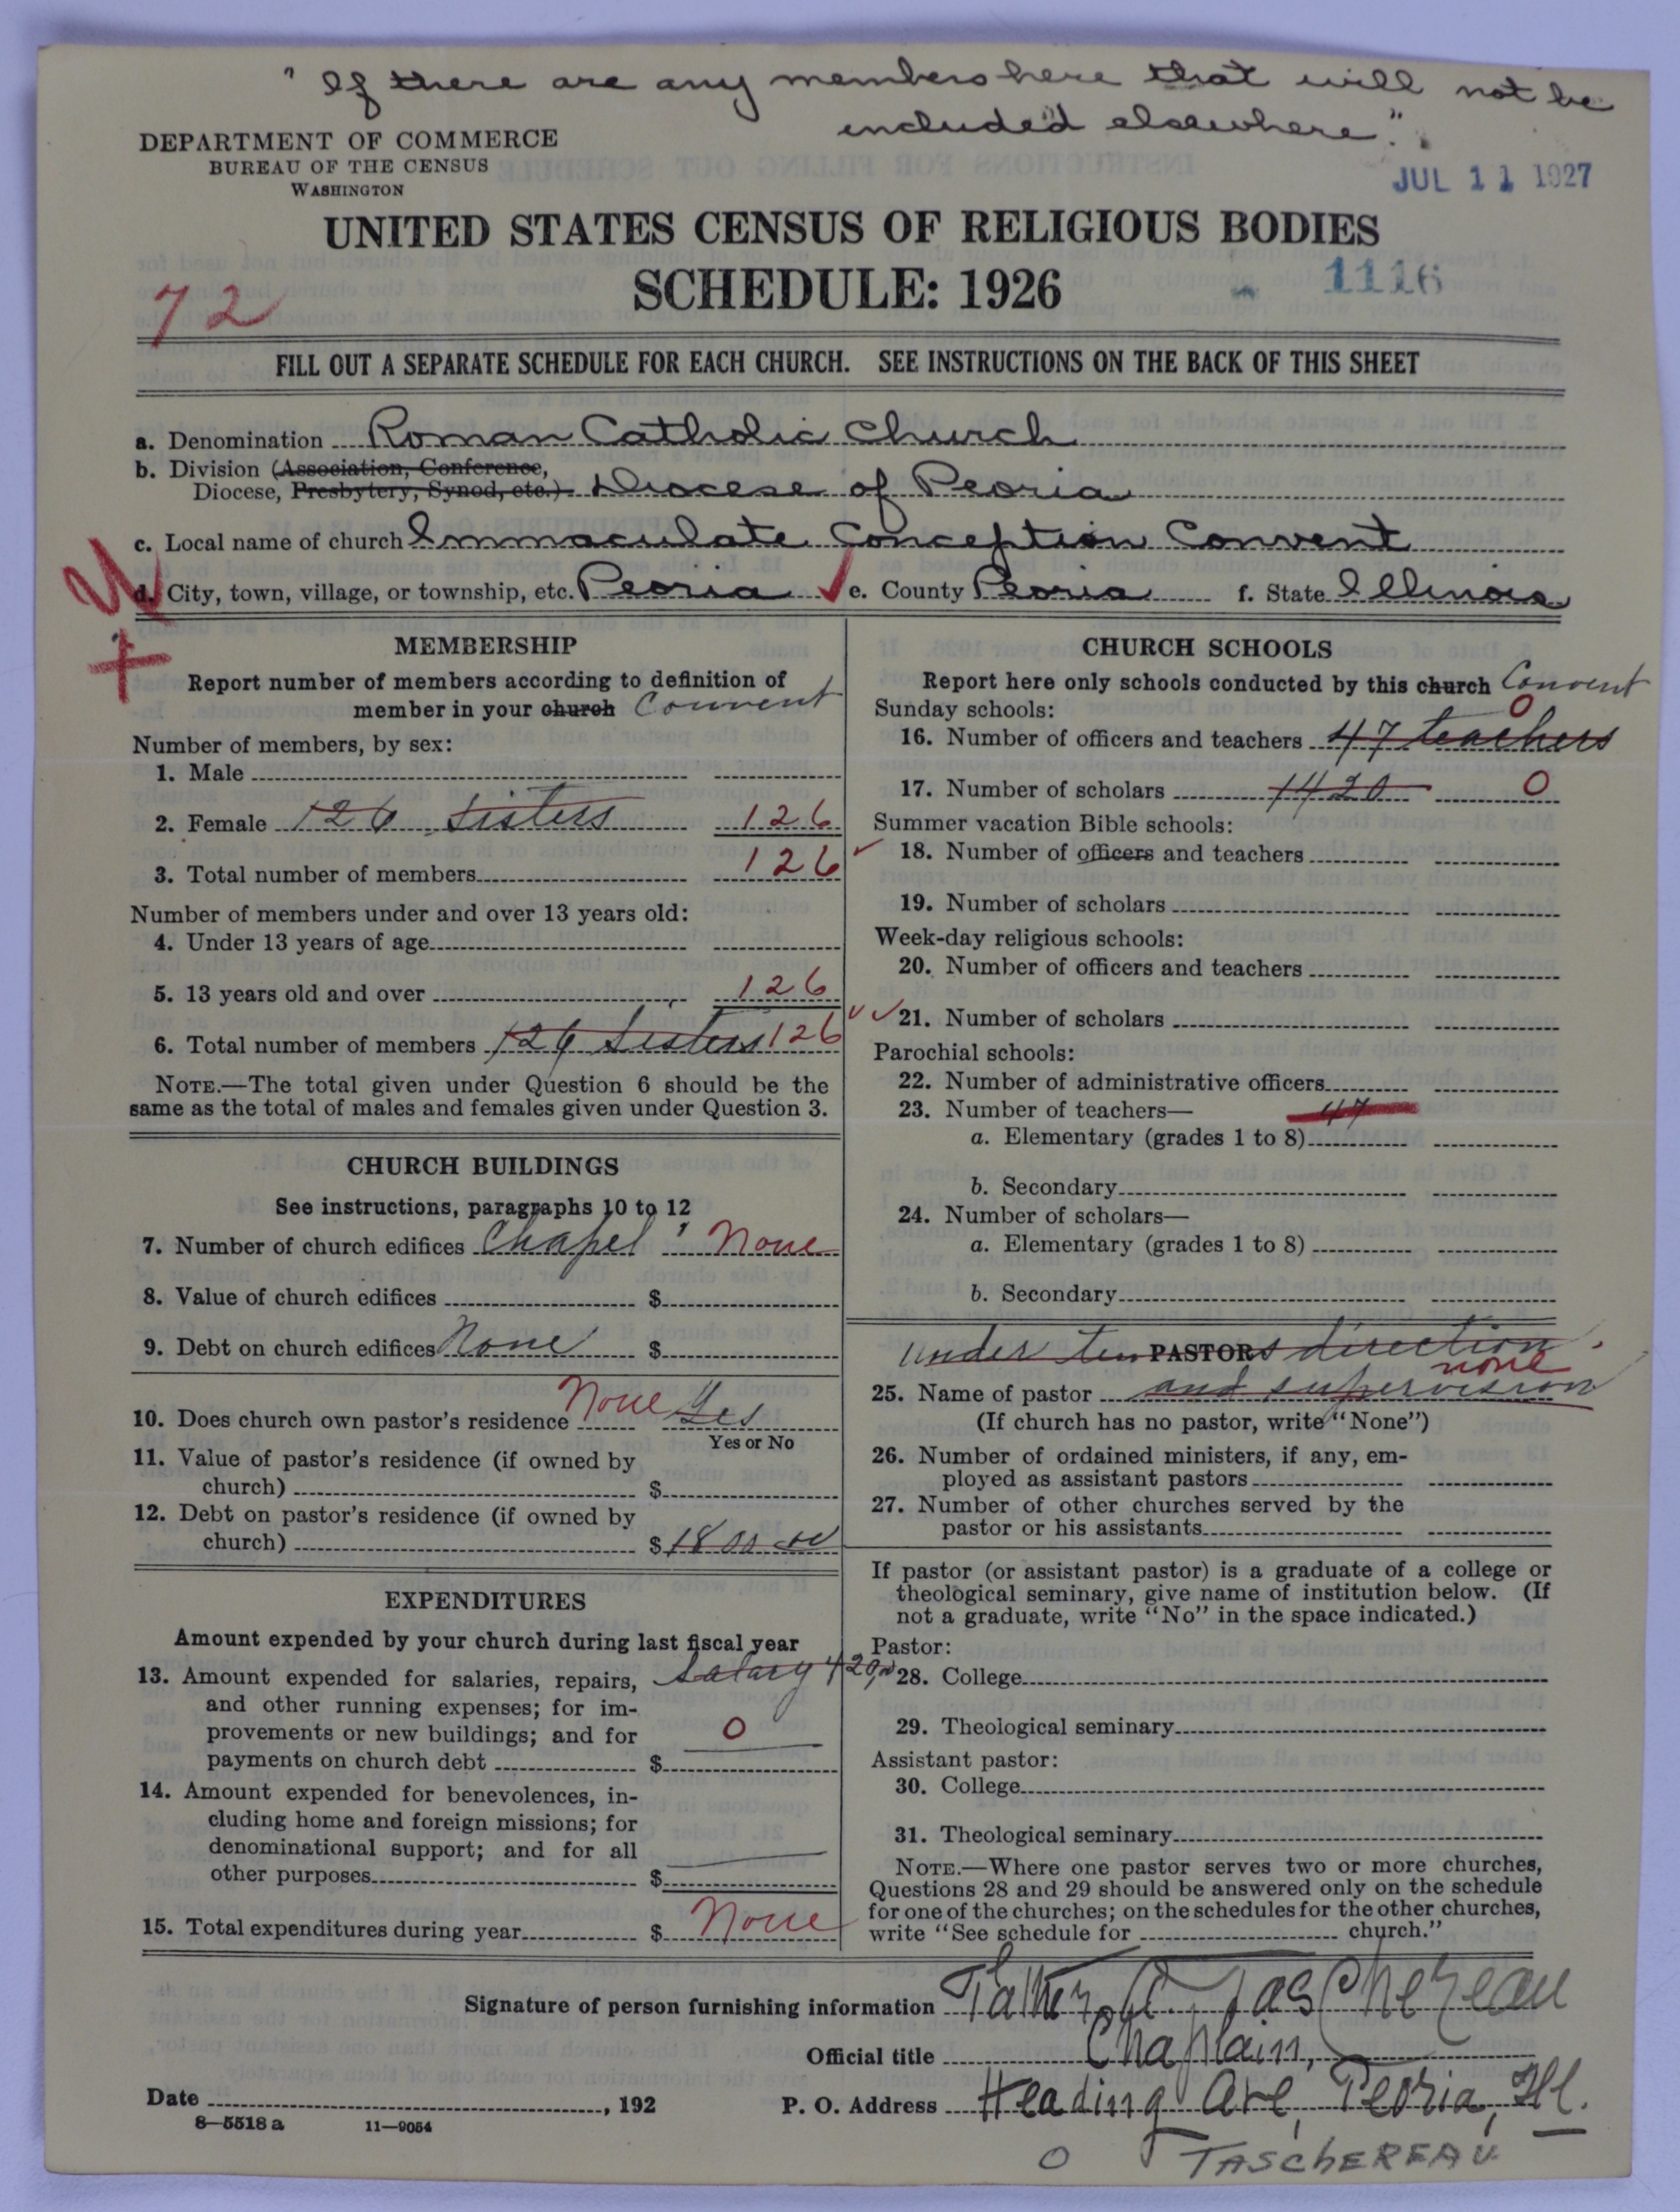 " If there are any members here that will not be
included elsewhere."
DEPARTMENT OF COMMERCE
BUREAU OF THE CENSUS
WASHINGTON
JUL 11 1927
UNITED STATES CENSUS OF RELIGIOUS BODIES
SCHEDULE: 1926
1116
72
FILL OUT A SEPARATE SCHEDULE FOR EACH CHURCH. SEE INSTRUCTIONS ON THE BACK OF THIS SHEET
a. Denomination Roman Catholic Church
b. Division (Association, Conference,
Diocese, Presbytery, Synod, etc.) Diocese of Peoria
c. Local name of church Immaculate Conception Convent
d. City, town, village, or township, etc. Peoria e. County Peoria f. State Illinois
MEMBERSHIP
Report number of members according to definition of
member in your church Convent
Number of members, by sex:
1. Male
2. Female 126 Sisters 126
3. Total number of members 126
Number of members under and over 13 years old:
4. Under 13 years of age
5. 13 years old and over 126
6. Total number of members 126 Sisters 126
NOTE.—The total given under Question 6 should be the
same as the total of males and females given under Question 3.
CHURCH BUILDINGS
See instructions, paragraphs 10 to 12
7. Number of church edifices Chapel 1 None
8. Value of church edifices $
9. Debt on church edifices None $
10. Does church own pastor's residence None Yes
Yes or No
11. Value of pastor's residence (if owned by
church) $
12. Debt on pastor's residence (if owned by
church) $1800 00
EXPENDITURES
Amount expended by your church during last fiscal year
13. Amount expended for salaries, repairs, Salary 420,00
and other running expenses; for im-
provements or new buildings; and for 0
payments on church debt $
14. Amount expended for benevolences, in-
cluding home and foreign missions; for
denominational support; and for all
other purposes $
15. Total expenditures during year $ None
CHURCH SCHOOLS
Report here only schools conducted by this church Convent
Sunday schools: 0
16. Number of officers and teachers 47 teachers
17. Number of scholars 1420 0
Summer vacation Bible schools:
18. Number of officers and teachers
19. Number of scholars
Week-day religious schools:
20. Number of officers and teachers
21. Number of scholars
Parochial schools:
22. Number of administrative officers
23. Number of teachers— 47
a. Elementary (grades 1 to 8)
b. Secondary
24. Number of scholars—
a. Elementary (grades 1 to 8)
b. Secondary
under ten PASTORs direction
none
25. Name of pastor and supervision
(If church has no pastor, write "None")
26. Number of ordained ministers, if any, em-
ployed as assistant pastors
27. Number of other churches served by the
pastor or his assistants
If pastor (or assistant pastor) is a graduate of a college or
theological seminary, give name of institution below. (If
not a graduate, write "No" in the space indicated.)
Pastor:
28. College
29. Theological seminary
Assistant pastor:
30. College
31. Theological seminary
NOTE.—Where one pastor serves two or more churches,
Questions 28 and 29 should be answered only on the schedule
for one of the churches; on the schedules for the other churches,
write "See schedule for church."
Signature of person furnishing information Father Taschereau
Official title Chaplain,
Date , 192 P. O. Address Heading Ave, Peoria, Ill.
8—5518 a 11—9054
O TASCHEREAU